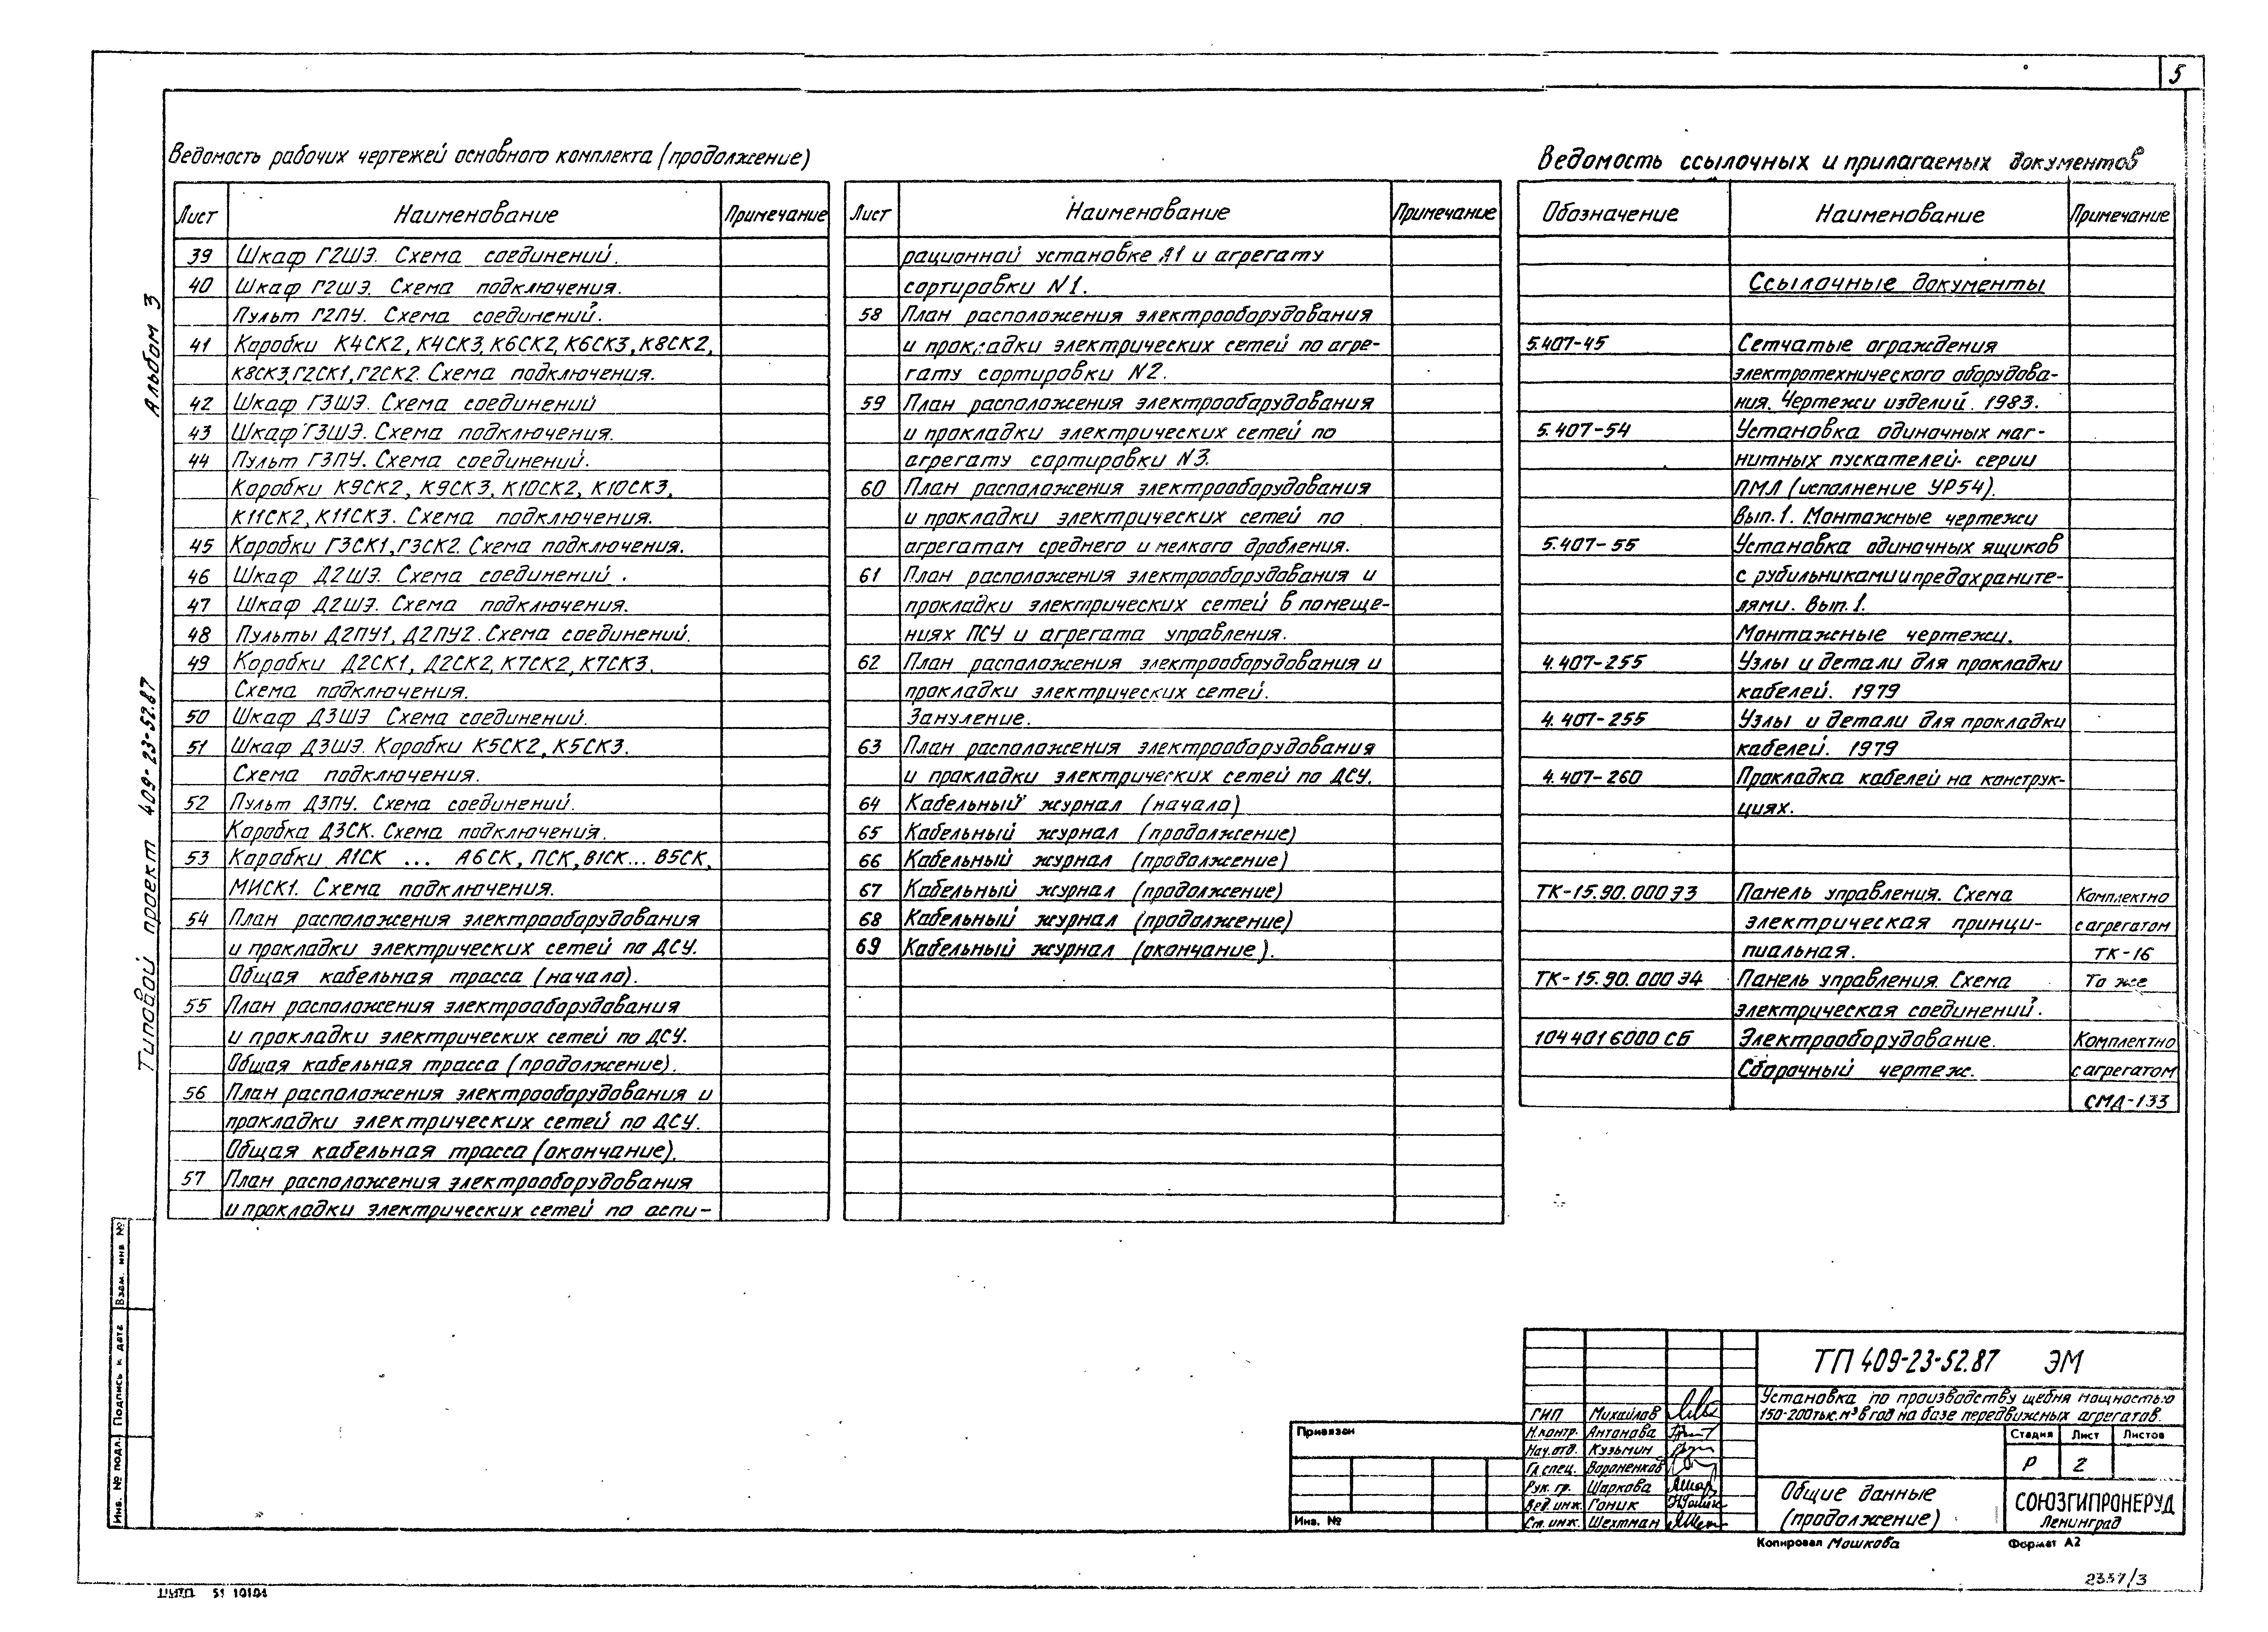 5
Ведомость рабочих чертежей основного комплекта (продолжение)
Лист Наименование Примечание
39 Шкаф Г2ШЭ. Схема соединений.
40 Шкаф Г2ШЭ. Схема подключения.
Пульт Г2ПУ. Схема соединений.
41 Коробки К4СК2, К4СК3, К6СК2, К6СК3, К8СК2,
К8СК3, Г2СК1, Г2СК2. Схема подключения.
42 Шкаф Г3ШЭ. Схема соединений
43 Шкаф Г3ШЭ. Схема подключения.
44 Пульт Г3ПУ. Схема соединений.
Коробки К9СК2, К9СК3, К10СК2, К10СК3,
К11СК2, К11СК3. Схема подключения.
45 Коробки Г3СК1, Г3СК2. Схема подключения.
46 Шкаф Д2ШЭ. Схема соединений.
47 Шкаф Д2ШЭ. Схема подключения.
48 Пульты Д2ПУ1, Д2ПУ2. Схема соединений.
49 Коробки Д2СК1, Д2СК2, К7СК2, К7СК3.
Схема подключения.
50 Шкаф Д3ШЭ Схема соединений.
51 Шкаф Д3ШЭ. Коробки К5СК2, К5СК3.
Схема подключения.
52 Пульт Д3ПУ. Схема соединений.
Коробка Д3СК. Схема подключения.
53 Коробки А1СК ... А6СК, ПСК, В1СК... В5СК,
МИСК1. Схема подключения.
54 План расположения электрооборудования
и прокладки электрических сетей по ДСУ.
Общая кабельная трасса (начало).
55 План расположения электрооборудования
и прокладки электрических сетей по ДСУ.
Общая кабельная трасса (продолжение).
56 План расположения электрооборудования и
прокладки электрических сетей по ДСУ.
Общая кабельная трасса (окончание).
57 План расположения электрооборудования
и прокладки электрических сетей по аспи-
Лист Наименование Примечание
рационной установке А1 и агрегату
сортировки N1.
58 План расположения электрооборудования
и прокладки электрических сетей по агре-
гату сортировки N2.
59 План расположения электрооборудования
и прокладки электрических сетей по
агрегату сортировки N3.
60 План расположения электрооборудования
и прокладки электрических сетей по
агрегатам среднего и мелкого дробления.
61 План расположения электрооборудования и
прокладки электрических сетей в помеще-
ниях ПСУ и агрегата управления.
62 План расположения электрооборудования и
прокладки электрических сетей.
Зануление.
63 План расположения электрооборудования
и прокладки электрических сетей по ДСУ.
64 Кабельный журнал (начало)
65 Кабельный журнал (продолжение)
66 Кабельный журнал (продолжение)
67 Кабельный журнал (продолжение)
68 Кабельный журнал (продолжение)
69 Кабельный журнал (окончание).
Ведомость ссылочных и прилагаемых документов
Обозначение Наименование Примечание
Ссылочные документы
5.407-45 Сетчатые ограждения
электротехнического оборудова-
ния. Чертежи изделий. 1983.
5.407-54 Установка одиночных маг-
нитных пускателей серии
ПМЛ (исполнение УР54).
Вып.1. Монтажные чертежи
5.407-55 Установка одиночных ящиков
с рубильниками и предохраните-
лями. Вып.1.
Монтажные чертежи.
4.407-255 Узлы и детали для прокладки
кабелей. 1979
4.407-255 Узлы и детали для прокладки
кабелей. 1979
4.407-260 Прокладка кабелей на конструк-
циях.
ТК-15.90.000 Э3 Панель управления. Схема Комплектно
электрическая принци- с агрегатом
пиальная. ТК-16
ТК-15.90.000 Э4 Панель управления. Схема То же
электрическая соединений.
104 401 6000 СБ Электрооборудование. Комплектно
Сборочный чертеж. с агрегатом
СМД-133
Альбом 3
Типовой проект 409-23-52.87
Взам. инв №
Подпись и дата
Инв. № подл.
Привязан
Инв. №
ГИП Михайлов
Н.контр. Антонова
Нач.отд. Кузьмин
Гл спец. Вороненков
Рук. гр. Шаркова
Вед.инж. Гоник
Ст.инж. Шехтман
ТП 409-23-52.87 ЭМ
Установка по производству щебня мощностью
150-200тыс.м³ в год на базе передвижных агрегатов.
Стадия Лист Листов
Р 2
Общие данные
(продолжение)
СОЮЗГИПРОНЕРУД
Ленинград
Копировал Мошкова Формат А2
2337/3